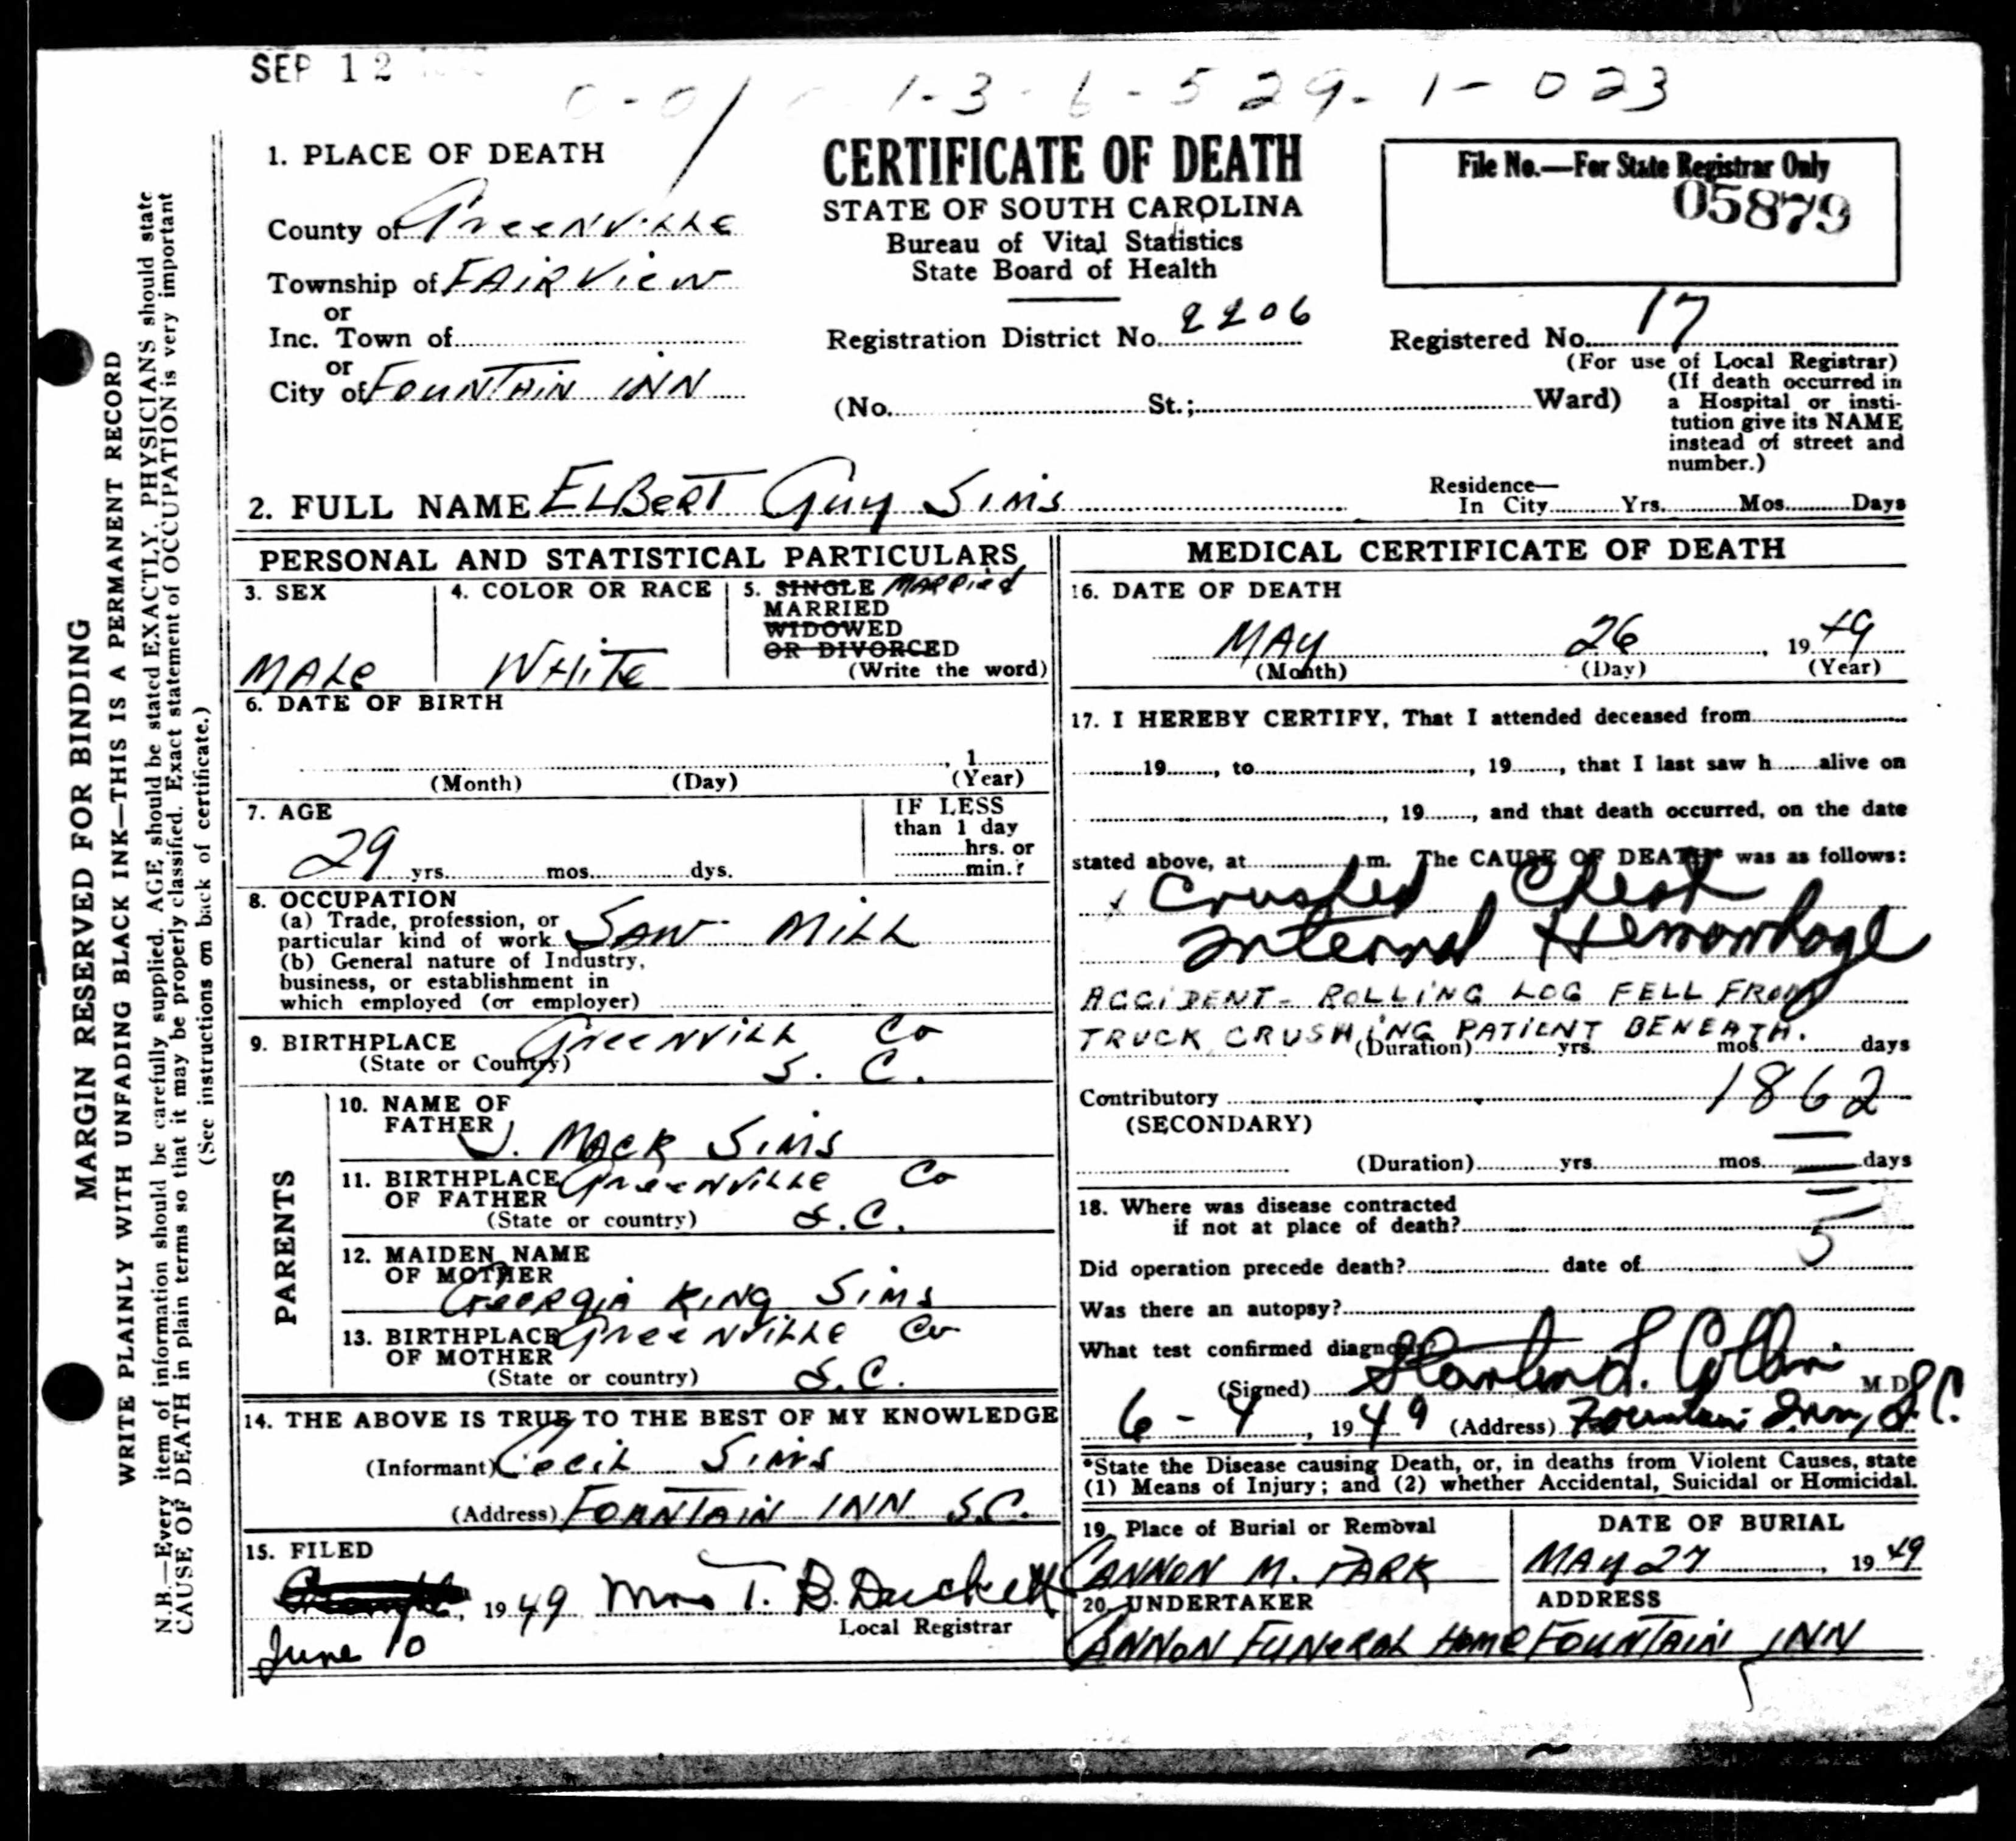 SEP 12
1-3-6-529-1-023
1. PLACE OF DEATH
County of Greenville
Township of Fairview
or
Inc. Town of
or
City of Fountain Inn
CERTIFICATE OF DEATH
STATE OF SOUTH CAROLINA
Bureau of Vital Statistics
State Board of Health
Registration District No. 2206
(No. St.; Ward)
File No.—For State Registrar Only
05879
Registered No. 17
(For use of Local Registrar)
(If death occurred in
a Hospital or insti-
tution give its NAME
instead of street and
number.)
2. FULL NAME Elbert Guy Sims
Residence—
In City Yrs. Mos. Days
PERSONAL AND STATISTICAL PARTICULARS
3. SEX
Male
4. COLOR OR RACE
White
5. SINGLE Married
MARRIED
WIDOWED
OR DIVORCED
(Write the word)
6. DATE OF BIRTH
, 1
(Month) (Day) (Year)
7. AGE
29 yrs. mos. dys.
IF LESS
than 1 day
hrs. or
min.?
8. OCCUPATION
(a) Trade, profession, or
particular kind of work Saw Mill
(b) General nature of Industry,
business, or establishment in
which employed (or employer)
9. BIRTHPLACE Greenvill Co
(State or Country) S. C.
PARENTS
10. NAME OF
FATHER J. Mack Sims
11. BIRTHPLACE Greenville Co
OF FATHER
(State or country) S.C.
12. MAIDEN NAME
OF MOTHER
Georgia King Sims
13. BIRTHPLACE Greenville Co
OF MOTHER
(State or country) S.C.
14. THE ABOVE IS TRUE TO THE BEST OF MY KNOWLEDGE
(Informant) Cecil Sims
(Address) Fountain Inn S.C.
15. FILED
, 1949 Mrs T. B. Duckett
Local Registrar
June 10
MEDICAL CERTIFICATE OF DEATH
16. DATE OF DEATH
May 26, 1949
(Month) (Day) (Year)
17. I HEREBY CERTIFY, That I attended deceased from
19, to, 19, that I last saw h alive on
, 19, and that death occurred, on the date
stated above, at m. The CAUSE OF DEATH* was as follows:
Crushed Chest
Internal Hemorrhage
ACCIDENT- ROLLING LOG FELL FROM
TRUCK CRUSHING PATIENT BENEATH.
(Duration) yrs. mos. days
Contributory 1862
(SECONDARY)
(Duration) yrs. mos. days
18. Where was disease contracted
if not at place of death?
5
Did operation precede death? date of
Was there an autopsy?
What test confirmed diagnosis?
(Signed) M.D.
6-4, 1949 (Address) Fountain Inn, S.C.
*State the Disease causing Death, or, in deaths from Violent Causes, state
(1) Means of Injury; and (2) whether Accidental, Suicidal or Homicidal.
19. Place of Burial or Removal
Cannon M. Park
DATE OF BURIAL
May 27, 1949
20. UNDERTAKER
Cannon Funeral Home
ADDRESS
Fountain Inn
MARGIN RESERVED FOR BINDING
WRITE PLAINLY WITH UNFADING BLACK INK—THIS IS A PERMANENT RECORD
N.B.—Every item of information should be carefully supplied. AGE should be stated EXACTLY. PHYSICIANS should state
CAUSE OF DEATH in plain terms so that it may be properly classified. Exact statement of OCCUPATION is very important
(See instructions on back of certificate.)